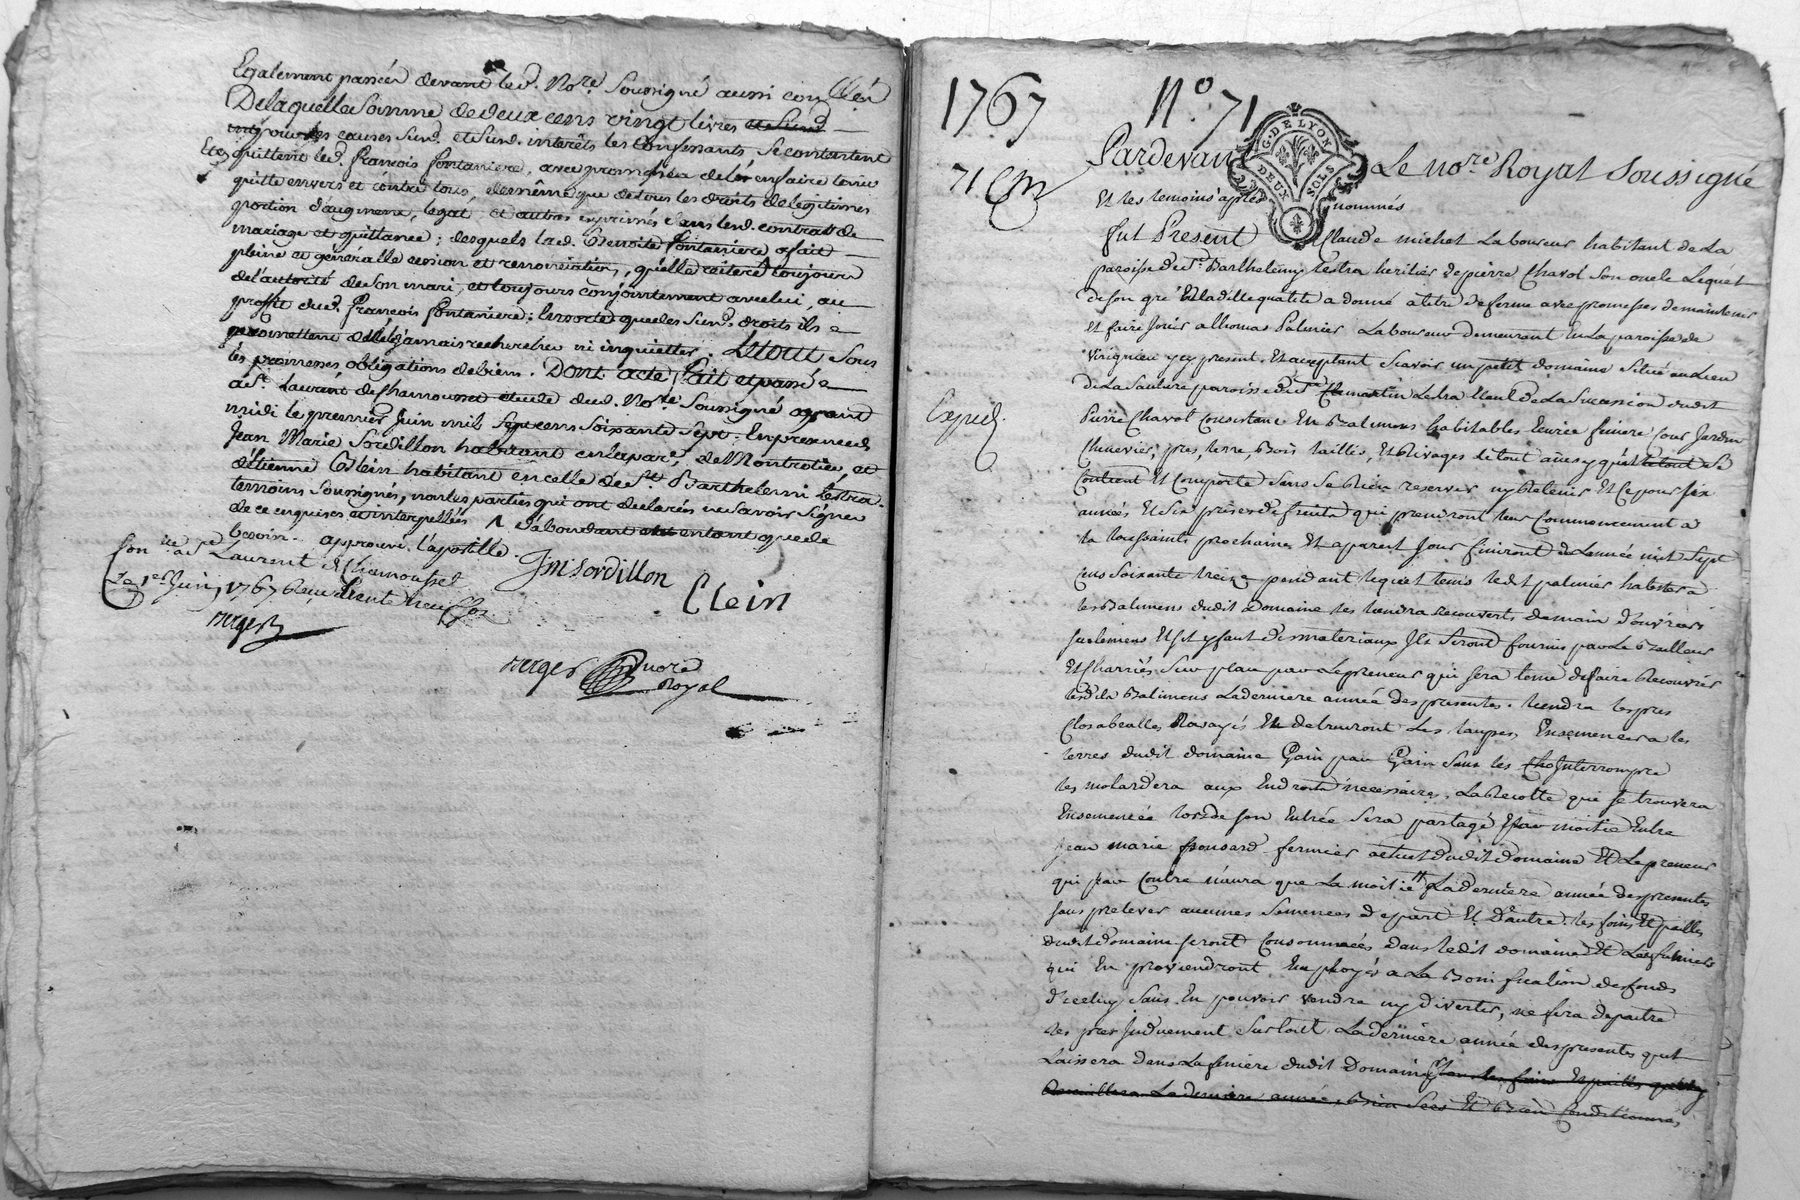 Egalement passée devant led. No.re Soussigné aussi con.llée
De laquelle Somme de deux cens vingt livres
causes susd. et susd. interêts les Confessants Se contentent
quittent led. françois fontaniere, avec promesse de l'en faire tenir
quitte envers et contre tous, de même que de tous les droits de legitimes
portion d'augment, legat, et autres exprimés dans led. contrat de
mariage et quittance; desquels lad. Benoite fontaniere a fait
pleine et généralle cession et renonciation, qu'elle reiteré toujours
de l'autorité de Son mari, et toujours conjointement avec lui, au
proffit dud. françois fontaniere; lesquels susd. droits ils
promettent de jamais rechercher ni inquietter. Le tout Sous
les promesses obligations de biens. Dont acte, fait et passé
a St. Laurent de chamousset etude dud. No.re Soussigné avant
midi le premier Juin mil Sept cens Soixante Sept. En presence de
Jean Marie Sordillon habitant en la par.e de Montrotier, et
d'Etienne Clein habitant en celle de St. Barthelemi lestra
temoins Soussignés, non les parties qui ont declarés ne savoir Signer
de ce enquises et interpellées
besoin. approuvé l'apostille
JmSordillon
Clein
Con.lé a St Laurent de Chamousset
Le 1er Juin 1767 Reçu trente neuf sols
Berger
Berger nore
Royal
1767 No. 71
71 Cm
G. DE LYON
DEUX SOLS
Pardevant Le no.re Royal Soussigné
Et les temoins après nommés
fut Present Claude michel Laboureur habitant de La
paroisse de St. Barthelemy Lestra heritier de pierre Chavol Son oncle Lequel
de son gré Et ladite qualité a donné a titre de ferme avec promesses de maintenir
Et faire Jouir a thomas Palmier Laboureur demeurant En La paroisse de
virignieu y cy present, Et acceptant Scavoir un petit domaine Situé au Lieu
de La Sauture paroisse de St. Clement Lestra de La Succession dudit
Expéd.
Pierre Chavol Consistant En Batimens habitables Ecurie feniere Cour Jardin
Chenevier, pres, terre, Bois taillis, Et Rivages Le tout ainsy qu'il Se
Contient Et Comporte Sans Se Rien reserver ny Retenir Et Ce pour Six
années Et Six prises de fruits qui prendront leur Commencement a
la toussaints prochaines Et a pareil Jour finiront de L'année mil Sept
Cens Soixante treize pendant lequel tems ledit palmier habitera
les Batimens dudit Domaine les tiendra recouverts de main d'ouvriers
Seulement Et S'il y faut des materiaux Ils Seront fournis par Le Bailleur
Et Charriés Sur place par Le preneur qui Sera tenu de faire Recouvrir
lesdits Batimens La derniere année des presentes. tiendra les pres
Clos Rasayés En detruiront Les taupes, Ensemencera les
terres dudit domaine Gain par Gain Sans les Interrompre
les molardera aux Endroits necessaires. La Recolte qui Se trouvera
Ensemencée lors de Son Entrée Sera partagé par moitié Entre
Jean marie ponsard fermier actuel dudit Domaine Et Le preneur
qui par Contre n'aura que La moitié La derniere année des presentes
Sans prelever aucunes Semences d'epart Et d'autre. les foins Et pailles
dudit Domaine Seront Consommées dans ledit domaine Et Les fumiers
qui En proviendront Employés a La Bonification des fonds
d'icelluy Sans En pouvoir vendre ny divertir, ne fera depaitre
les pres Induement Surtout La derniere année des presentes qu'il
Laissera dans La feniere dudit Domaine tous les foins Et pailles qu'il y
Recuillera La derniere année, Bien Secs Et Bien Conditionnés